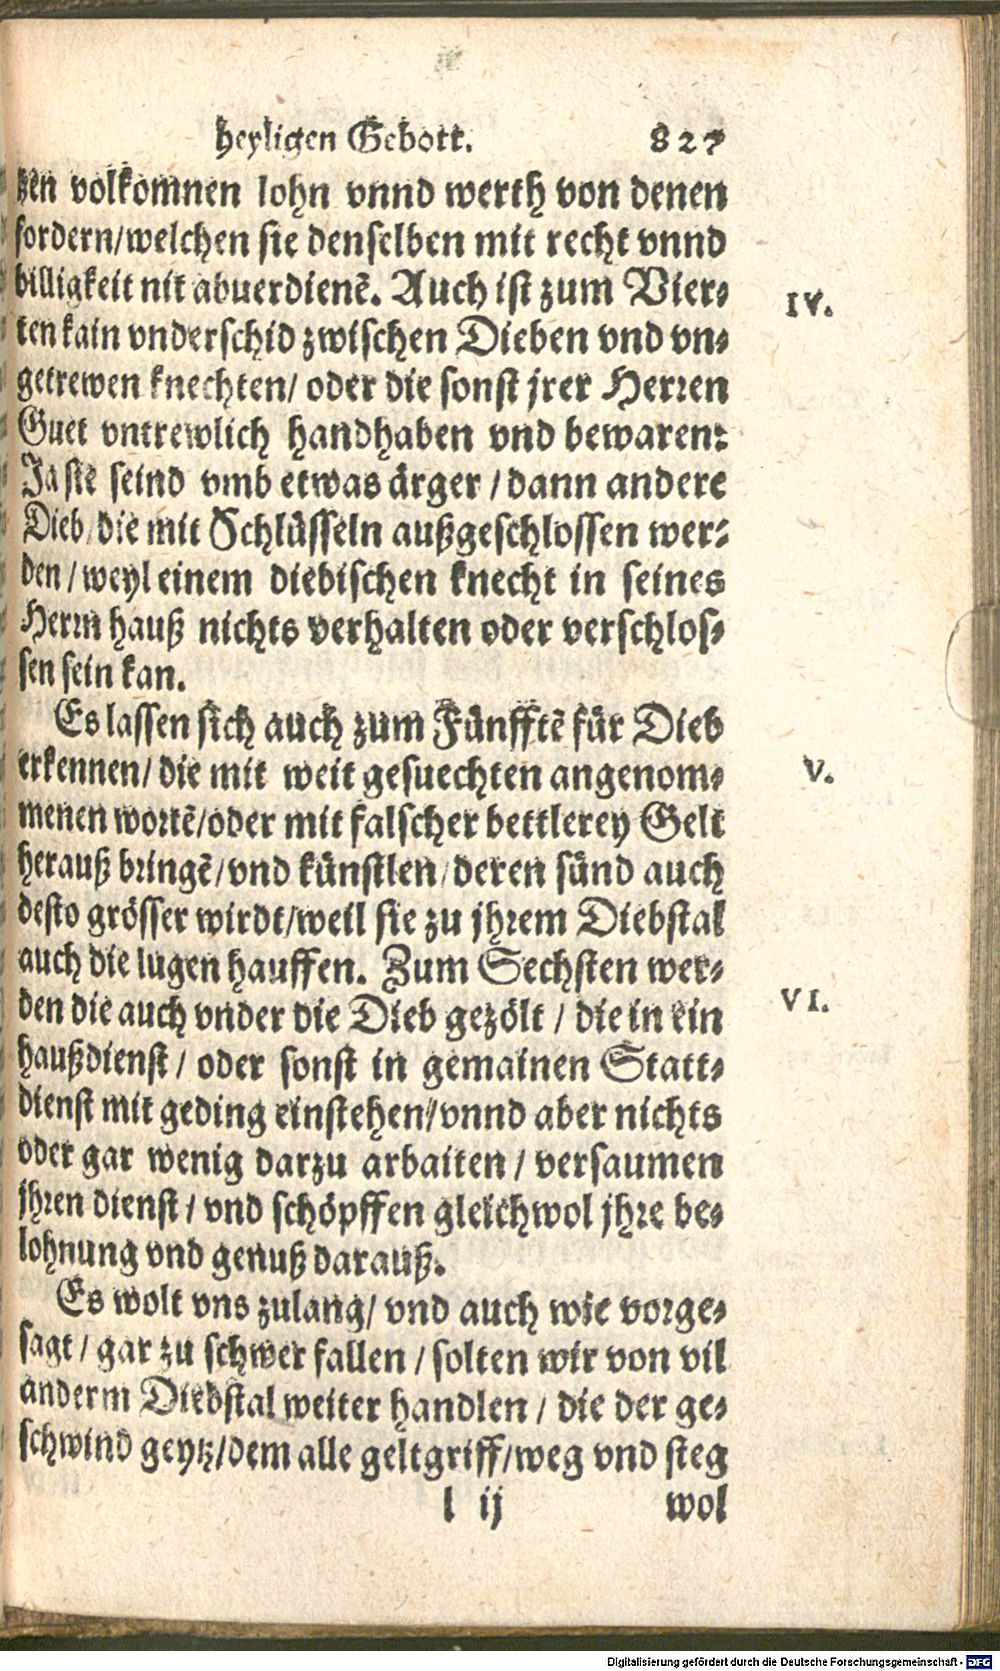 heyligen Gebott. 827
tzen volkomnen lohn vnnd werth von denen
fordern/welchen sie denselben mit recht vnnd
billigkeit nit abuerdienẽ. Auch ist zum Vier-
IV.
ten kain vnderschid zwischen Dieben vnd vn-
getrewen knechten/ oder die sonst jrer Herren
Guet vntrewlich handhaben vnd bewaren:
Ja sie seind vmb etwas ärger / dann andere
Dieb/ die mit Schlüsseln außgeschlossen wer-
den / weyl einem diebischen knecht in seines
Herrn hauß nichts verhalten oder verschlos-
sen sein kan.
Es lassen sich auch zum Fünfftẽ für Dieb
erkennen/ die mit weit gesuechten angenom-
V.
menen wortẽ/oder mit falscher bettlerey Gelt
herauß bringẽ/vnd künstlen/deren sünd auch
desto grösser wirdt/weil sie zu jhrem Diebstal
auch die lugen hauffen. Zum Sechsten wer-
den die auch vnder die Dieb gezölt / die in ein
VI.
haußdienst / oder sonst in gemainen Statt-
dienst mit geding einstehen/vnnd aber nichts
oder gar wenig darzu arbaiten / versaumen
jhren dienst / vnd schöpffen gleichwol jhre be-
lohnung vnd genuß darauß.
Es wolt vns zulang/ vnd auch wie vorge-
sagt / gar zu schwer fallen / solten wir von vil
anderm Diebstal weiter handlen / die der ge-
schwind geytz/dem alle geltgriff/weg vnd steg
l ij wol
Digitalisierung gefördert durch die Deutsche Forschungsgemeinschaft - DFG